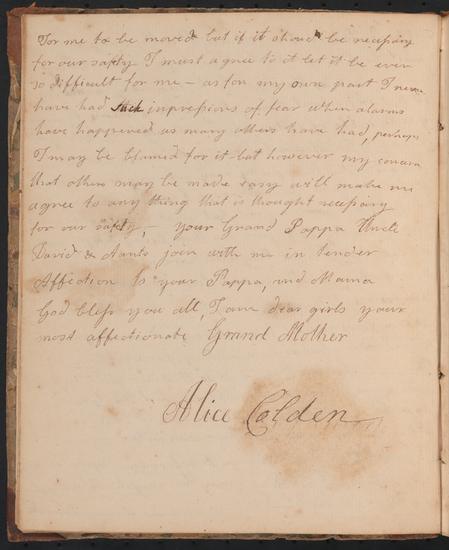 For me to be moved but if it should be necessary
for our safty I must agree to it let it be ever
so difficult for me – as for my own part I never
have had such impressions of fear when alarms
have happened as many others have had, perhaps
I may be blamed for it but however my concern
that others may be made easy will make me
agree to any thing that is thought necessary
for our safty, – your Grand Pappa Uncle
David & Aunts join with me in tender
Affection to your Pappa, and Mama
God bless you all, I am dear girls your
most affectionate Grand Mother
Alice Colden